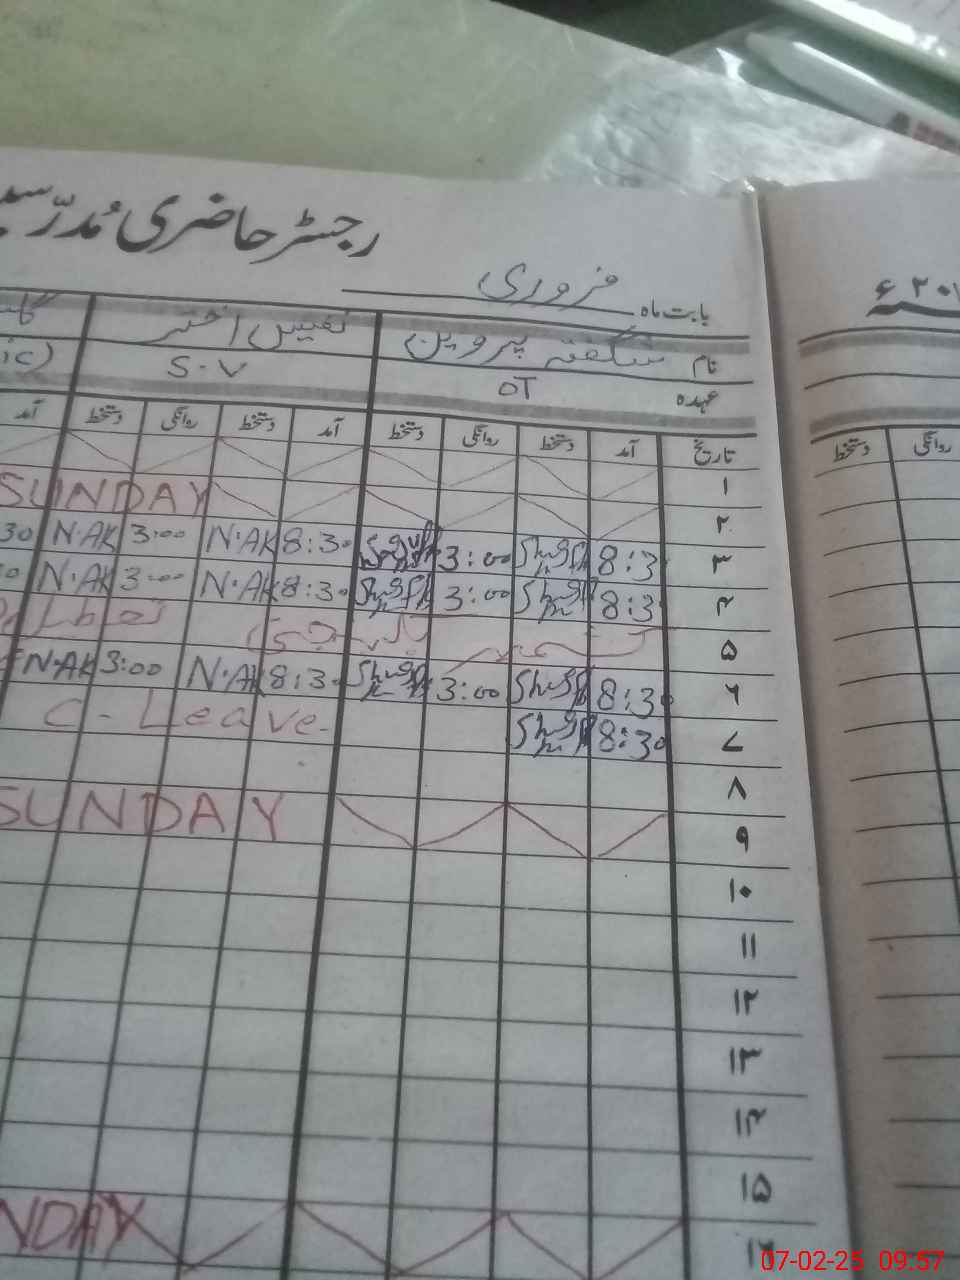 رجسٹر حاضری مُدرّسین
بابت ماہ فروری
۲۰ء
نام شگفتہ پروین نفیس اختر
عہدہ OT S.V ic)
تاریخ آمد دستخط روانگی دستخط آمد دستخط روانگی دستخط آمد
روانگی دستخط
۱
۲ SUNDAY
۳ 8:3 Shugf 3:00 Shugf 8:30 N.AK 3:00 N.AK 30
۴ 8:3 Shugf 3:00 Shugf 8:30 N.AK 3:00 N.AK
۵ یوم یکجہتی کشمیر تعطیل
۶ 8:30 Shugf 3:00 Shugf 8:30 N.AK 3:00 N.AK
۷ 8:30 Shugf C-Leave
۸
۹ SUNDAY
۱۰
۱۱
۱۲
۱۳
۱۴
۱۵
۱۶ NDAY
07-02-25 09:57